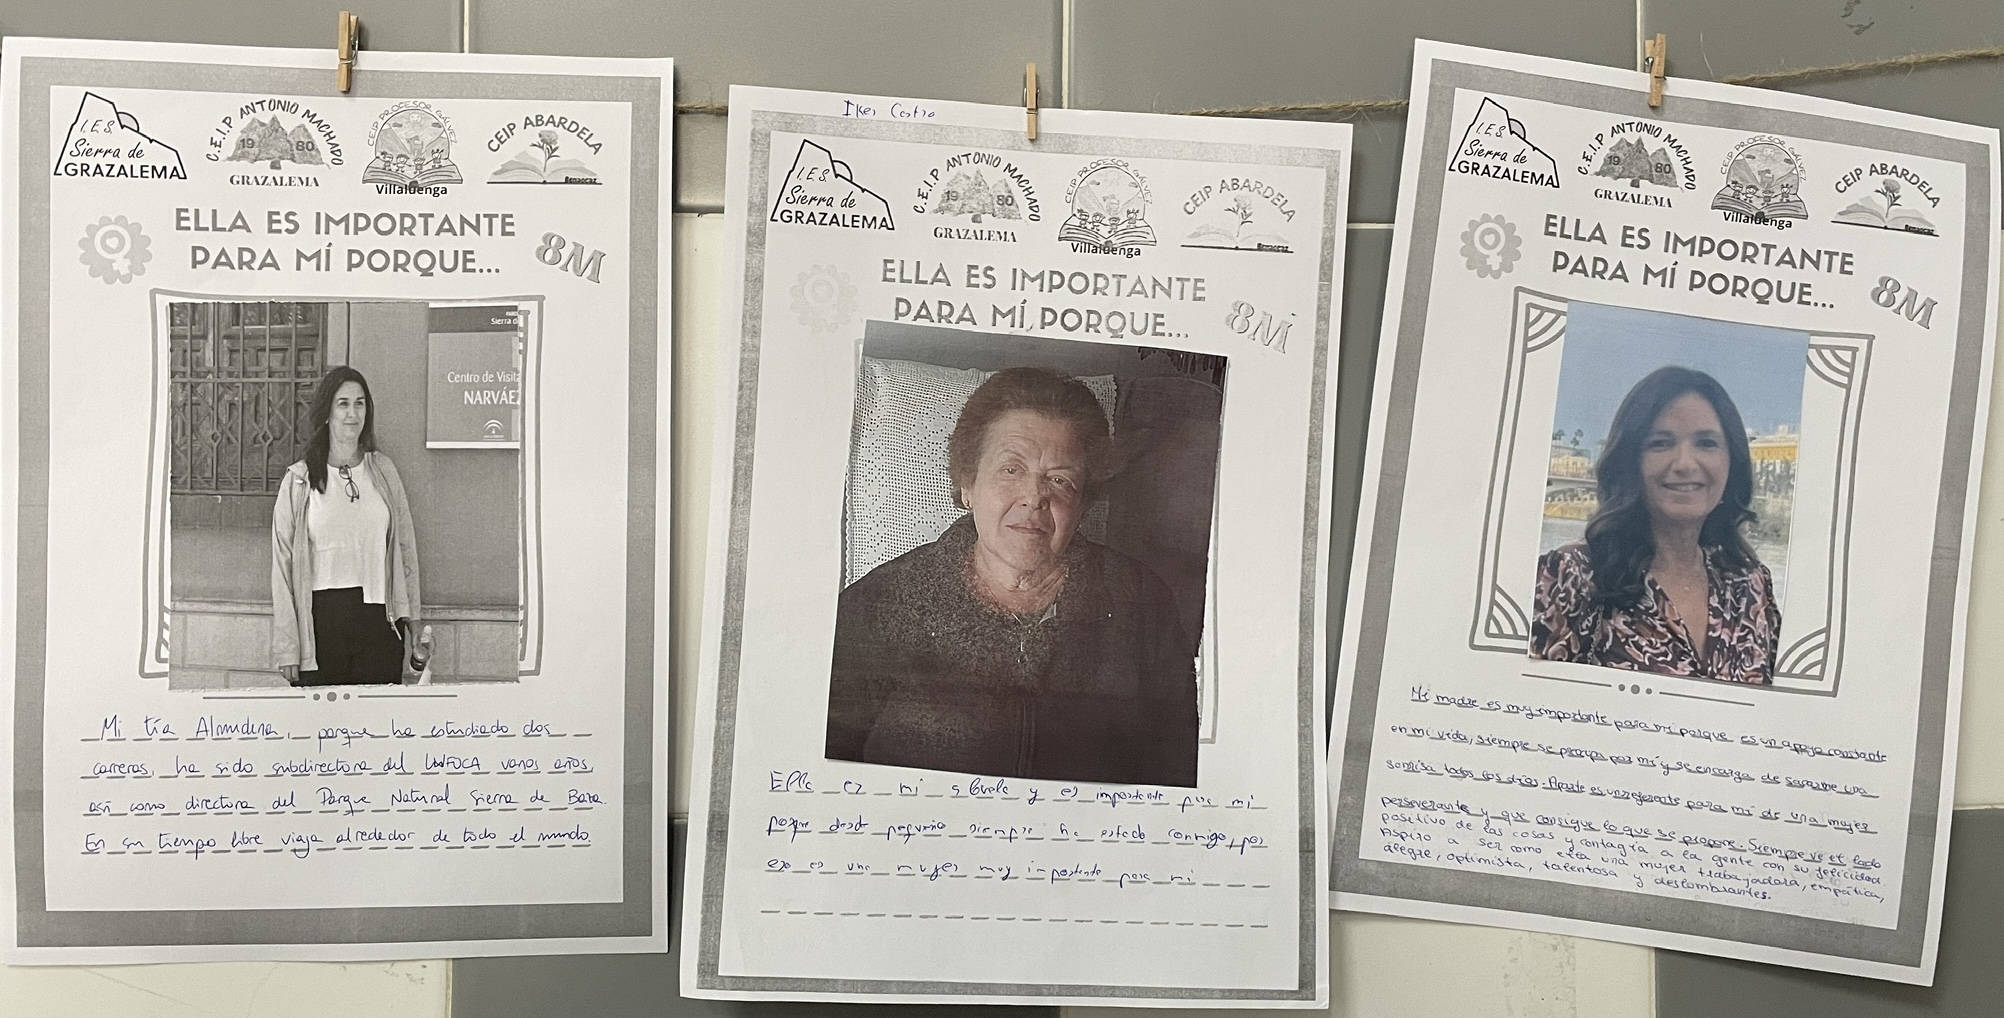 I.E.S.
Sierra de
GRAZALEMA
C.E.I.P ANTONIO MACHADO
19 80
GRAZALEMA
CEIP PROFESOR GÁLVEZ
Villaluenga
CEIP ABARDELA
Benaocaz
ELLA ES IMPORTANTE
PARA MÍ PORQUE...
8M
Sierra d
Centro de Visita
NARVÁEZ
Mi tía Almudena, porque ha estudiado dos
carreras, ha sido subdirectora del varios años,
así como directora del Parque Natural Sierra de Baza.
En su tiempo libre viaja alrededor de todo el mundo.
Iker Castro
I.E.S.
Sierra de
GRAZALEMA
C.E.I.P ANTONIO MACHADO
19 80
GRAZALEMA
CEIP PROFESOR GÁLVEZ
Villaluenga
CEIP ABARDELA
Benaocaz
ELLA ES IMPORTANTE
PARA MÍ PORQUE...
8M
Ella es mi abuela y es importante para mi
porque desde pequeño siempre ha estado conmigo, por
eso es una mujer muy importante para mi
I.E.S.
Sierra de
GRAZALEMA
C.E.I.P ANTONIO MACHADO
19 80
GRAZALEMA
CEIP PROFESOR GÁLVEZ
Villaluenga
CEIP ABARDELA
Benaocaz
ELLA ES IMPORTANTE
PARA MÍ PORQUE...
8M
Mi madre es muy importante para mi porque es un apoyo constante
en mi vida, siempre se preocupa por mí y se encarga de sacarme una
sonrisa todos los días. Aparte es un referente para mí de una mujer
perseverante y que consigue lo que se propone. Siempre ve el lado
positivo de las cosas y contagia a la gente con su felicidad.
Aspiro a ser como ella una mujer trabajadora, empática,
alegre, optimista, talentosa y deslumbrantes.